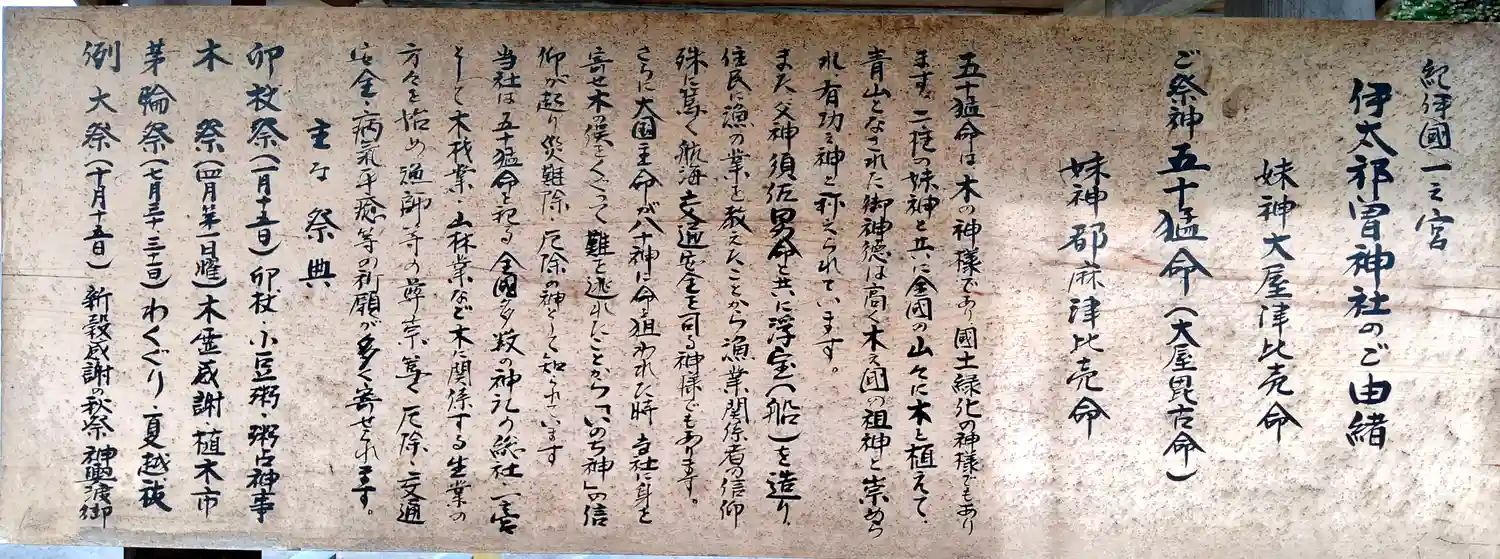 紀伊國一之宮
伊太祁曽神社のご由緒
妹神大屋津比売命
ご祭神 五十猛命(大屋毘古命)
妹神都麻津比売命
五十猛命は木の神様であり國土緑化の神様でもあり
ます。二柱の妹神と共に全國の山々に木を植えて、
青山となされた御神徳は高く木え國の祖神と崇めら
れ有功之神と称えられています。
また父神須佐男命と共に浮宝(船)を造り、
住民に漁の業を教えたことから漁業関係者の信仰
殊に篤く航海交通安全を司る神様でもあります。
さらに大国主命が八十神に命を狙われた時 当社に身を
寄せ木の俣をくぐって難を逃れたことから「いのち神」の信
仰が起り災難除 厄除の神として知られています
当社は五十猛命を祀る全國多数の神社の総社 一宮
そして木材業・山林業など木に関係する生業の
方々を始め漁師等の尊崇篤く厄除・交通
安全・病氣平癒等の祈願が多く寄せられます。
主な祭典
卯杖祭(一月十五日)卯杖・小豆粥・粥占神事
木 祭(四月第一日曜)木霊感謝・植木市
茅輪祭(七月三十・三十一日)わくぐり・夏越祓
例大祭(十月十五日)新穀感謝の秋祭 神輿渡御